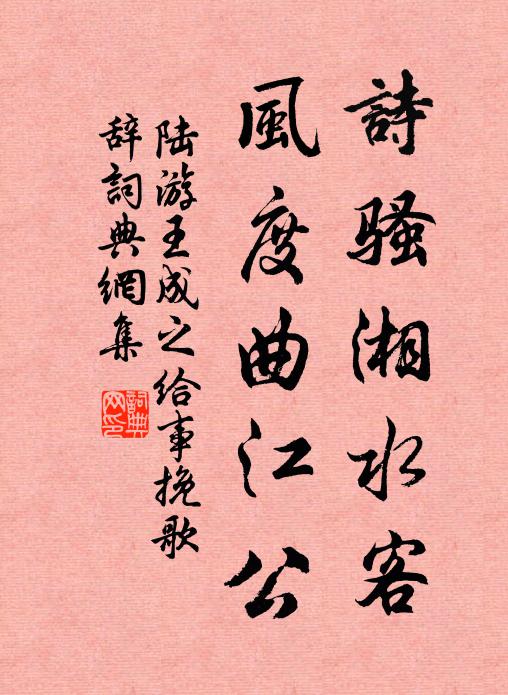 詩騷湘水客
風度曲江公
陆游王成之给事挽歌
辞詞典網集
詞典网印